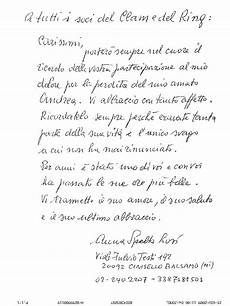 A tutti i soci del Clan e del Ring:
Carissimi,
porterò sempre nel cuore il
ricordo della vostra partecipazione al mio
dolor per la perdita del mio amato
Andrea. Vi abbraccio con tanto affetto.
Ricordatelo sempre perché eravate tanta
parte della sua vita e l'unico svago
a cui non ha mai rinunciato.
Per anni è stato uno di voi e con voi
ha passato le sue ore più belle.
Vi trasmetto il suo amore, il suo saluto
e il suo abbraccio
Anna
Viale Fulvio Testi 192
20092 CINISELLO BALSAMO (MI)